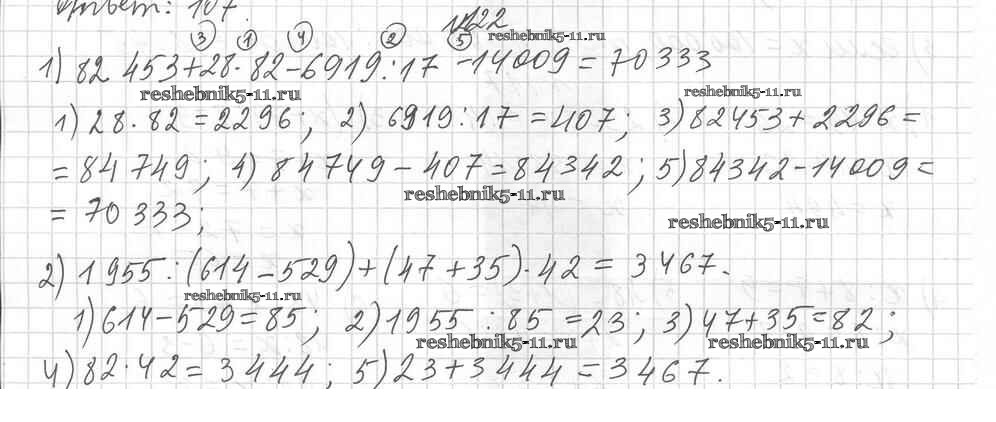 Ответ: 107.
№122
③ ① ④ ② ⑤ reshebnik5-11.ru
1) 82 453+28·82-6919:17-14009=70333
reshebnik5-11.ru reshebnik5-11.ru
1) 28·82=2296; 2) 6919:17=407; 3) 82453+2296=
=84749; 4) 84749-407=84342; 5) 84342-14009=
reshebnik5-11.ru
=70333;
reshebnik5-11.ru
2) 1955:(614-529)+(47+35)·42=3467.
reshebnik5-11.ru
1) 614-529=85; 2) 1955:85=23; 3) 47+35=82;
reshebnik5-11.ru reshebnik5-11.ru
4) 82·42=3444; 5) 23+3444=3467.